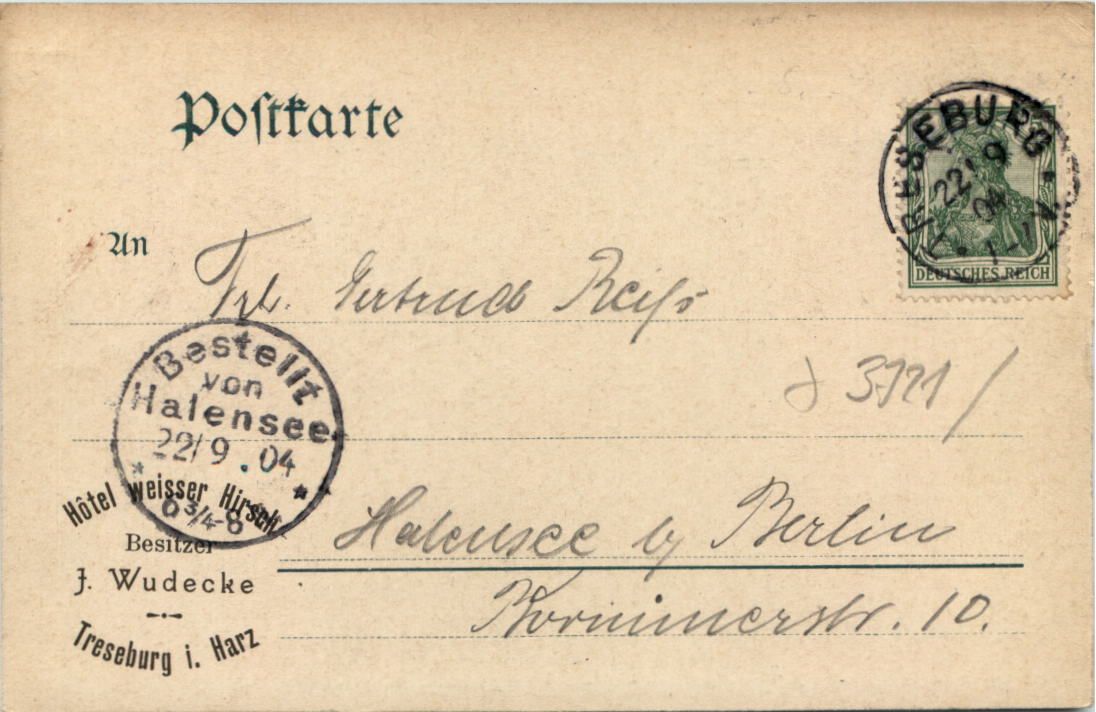 Poſtkarte
TRESEBURG
22/9
04
1-1
DEUTSCHES REICH
An
Frl. Gertrud Reiſs
3921
Bestellt
von
Halensee
22/9.04
6¾-8
Halensee b/ Berlin
Hôtel weisser Hirsch
Besitzer
J. Wudecke
Treseburg i. Harz